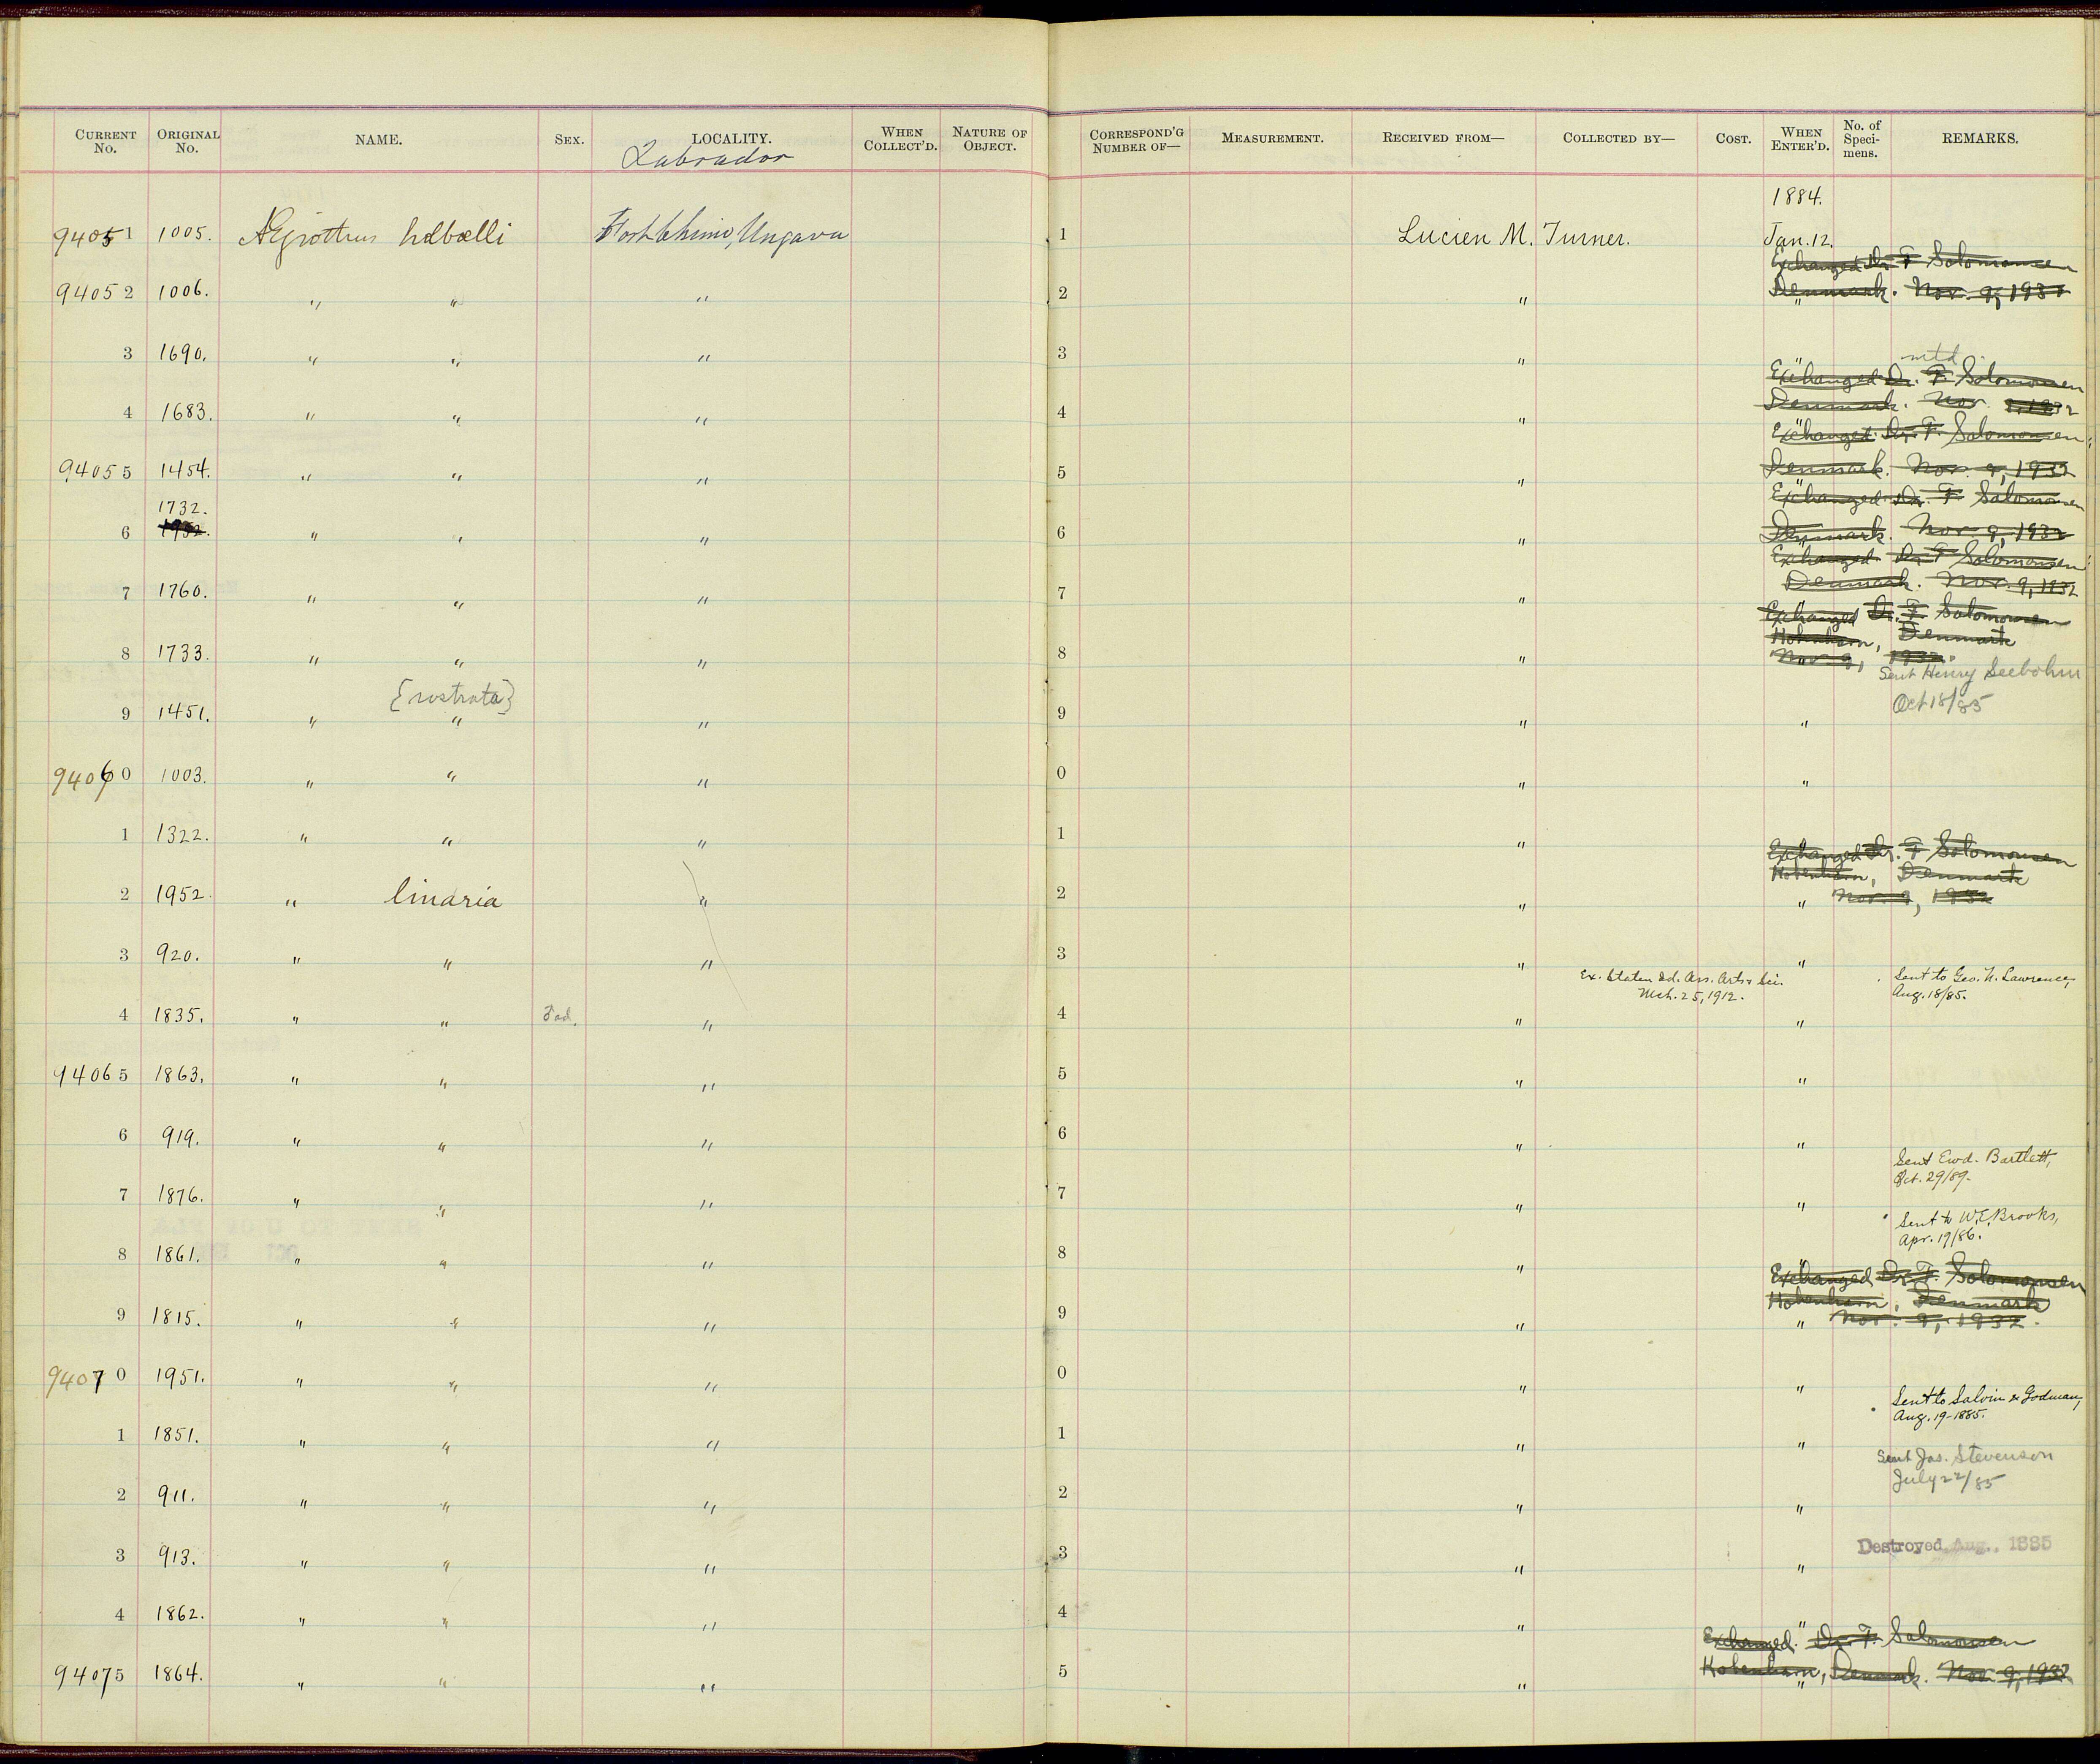 CURRENT No. ORIGINAL No. NAME. SEX. LOCALITY. WHEN COLLECT'D. NATURE OF OBJECT. CORRESPOND'G NUMBER OF— MEASUREMENT. RECEIVED FROM— COLLECTED BY— COST. WHEN ENTER'D. No. of Specimens. REMARKS.
Labrador
1884.
94051 1005. Ægiothus holbœlli Fort Chimo, Ungava 1 Lucien M. Turner. Jan. 12.
Exchanged Dr. F Salomonsen
94052 1006. " " " 2 " " Denmark. Nov. 9, 1932
3 1690. " " " 3 " " mtd.
Exchanged Dr. F. Salomonsen
4 1683. " " " 4 " Denmark. Nov. 9, 1932
Exchanged Dr. F. Salomonsen
94055 1454. " " " 5 " Denmark. Nov. 9, 1932
1732.
Exchanged Dr. F. Salomonsen
6 1952. " " " 6 " Denmark. Nov 9, 1932
Exchanged Dr F Salomonsen
7 1760. " " " 7 " Denmark. Nov. 9, 1932
Exchanged Dr. F Salomonsen
Kobenhavn, Denmark
8 1733. " " " 8 " Nov 9, 1932.
Sent Henry Seebohm
{rostrata}
Oct 18/85
9 1451. " " " 9 " "
94060 1003. " " " 0 " "
1 1322. " " " 1 " "
Exchanged Dr. F Salomonsen
Kobenhavn, Denmark
2 1952. " linaria " 2 " " Nov. 9, 1932
3 920. " " " 3 " "
Ex. Staten Id. Ass. Arts & Sci. Sent to Geo. N. Lawrence,
Mch. 25, 1912. Aug. 18/85.
4 1835. " " ad. " 4 " "
94065 1863. " " " 5 " "
6 919. " " " 6 " "
Sent Ewd. Bartlett,
Oct. 29/89.
7 1876. " " " 7 " "
Sent to W.E. Brooks,
Apr. 19/86.
8 1861. " " " 8 " "
Exchanged Dr. F. Salomonsen
Kobenhavn, Denmark
9 1815. " " " 9 " " Nov. 9, 1932.
94070 1951. " " " 0 " "
Sent to Salvin & Godman,
Aug. 19-1885.
1 1851. " " " 1 " "
Sent Jas. Stevenson
July 22/85
2 911. " " " 2 " "
Destroyed Aug., 1885
3 913. " " " 3 " "
4 1862. " " " 4 " "
Exchanged. Dr. F. Salomonsen
94075 1864. " " " 5 " " Kobenhavn, Denmark. Nov 9, 1932